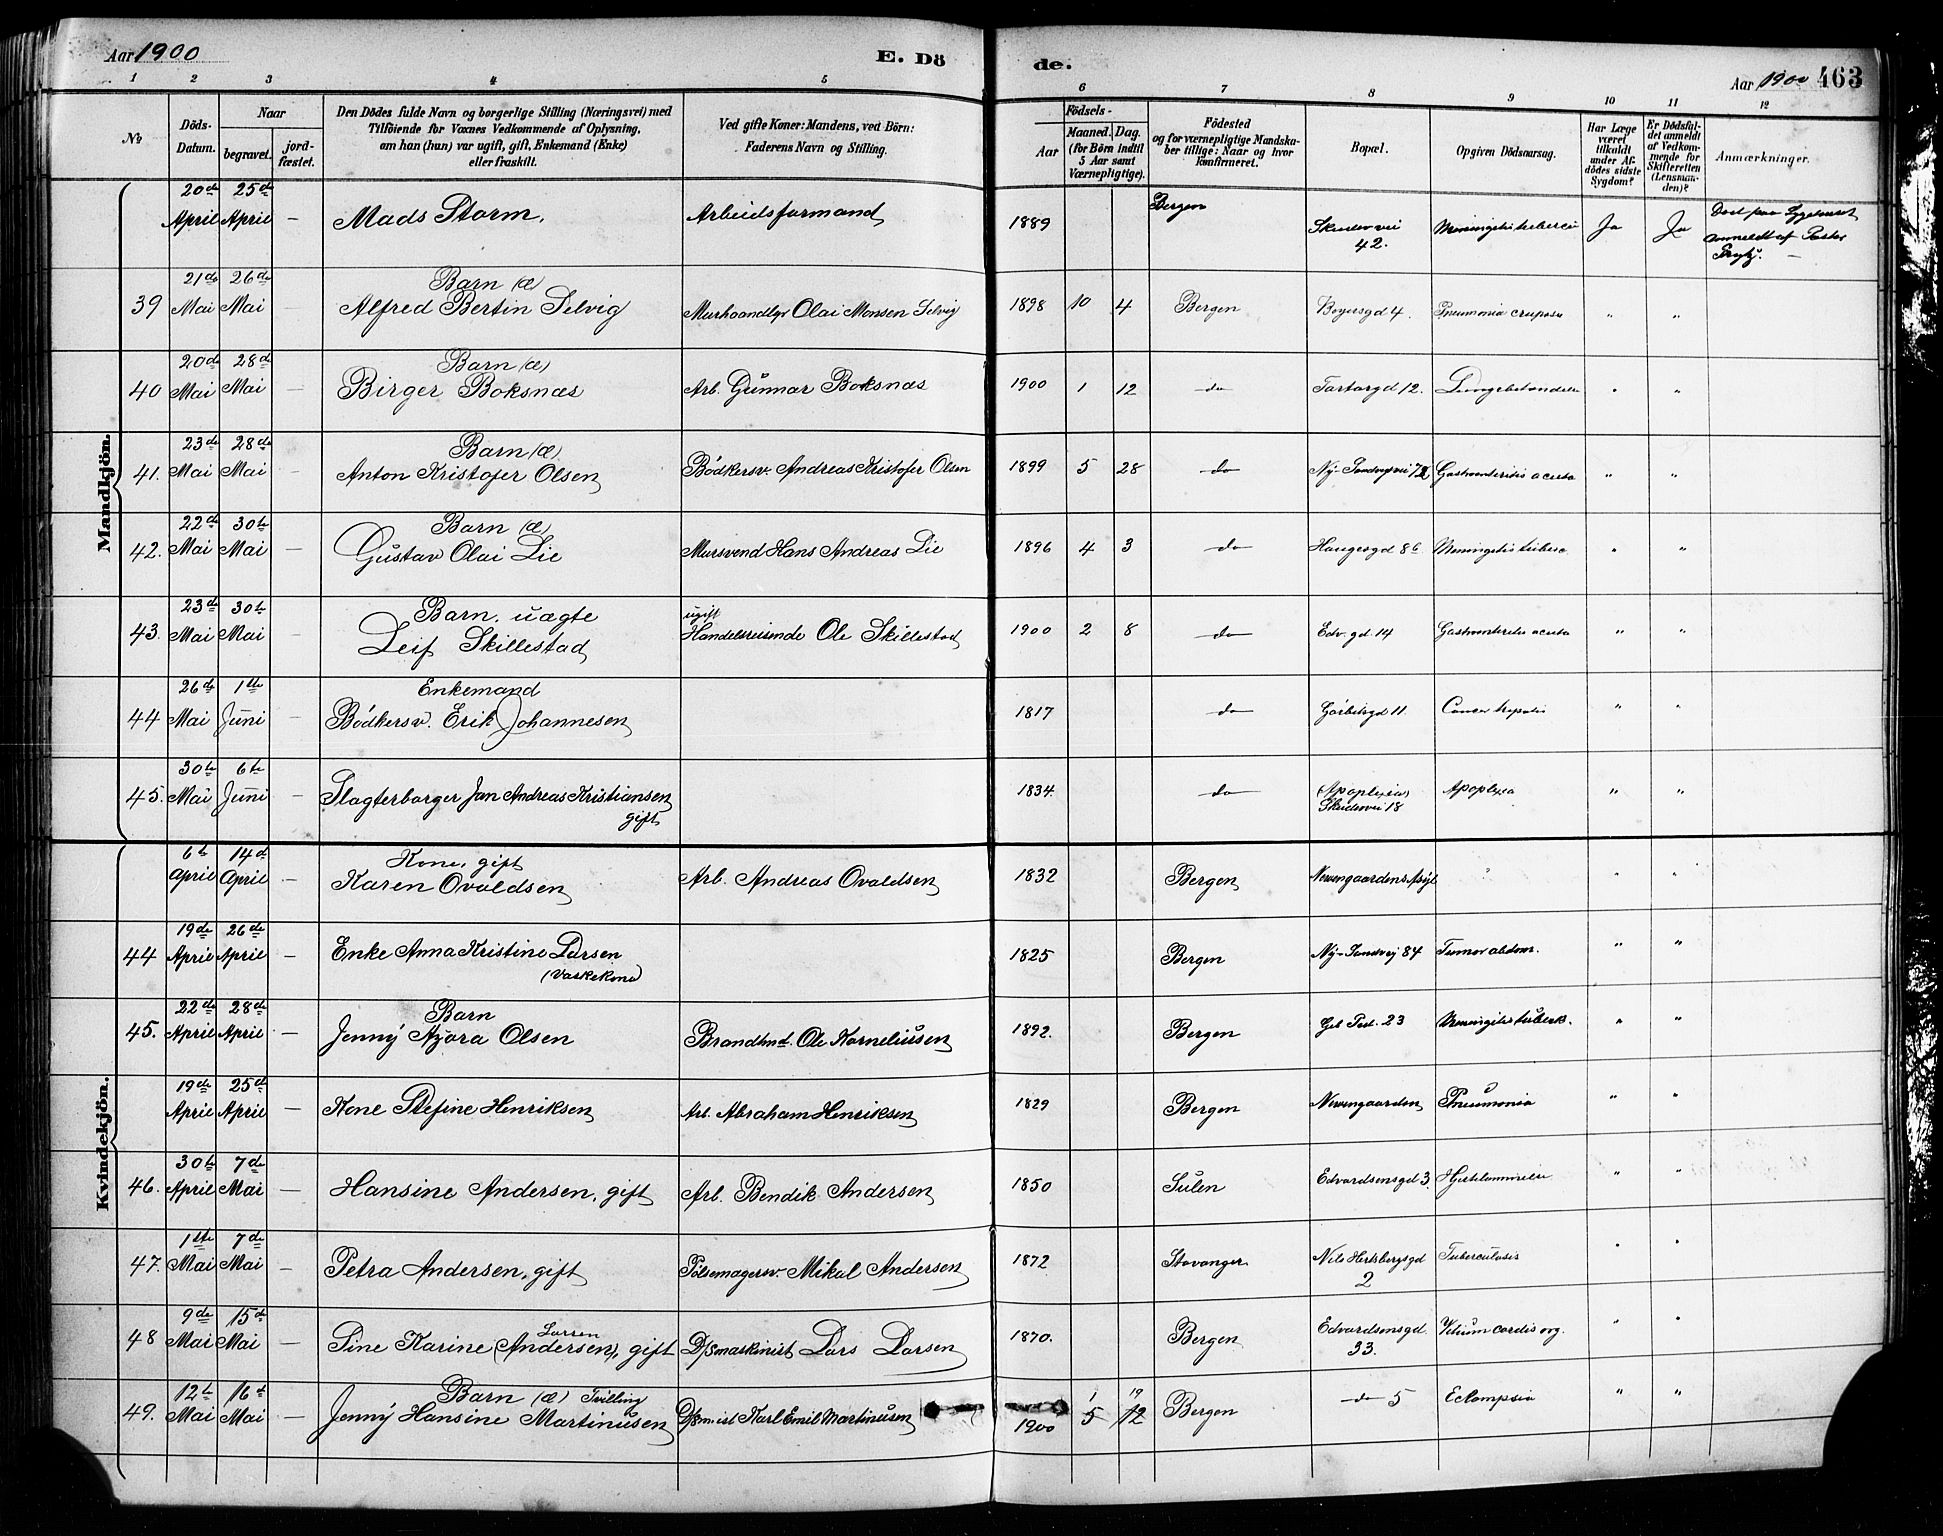 Aar 1900
E. Dö
de.
Aar 1900
463
1 2 3 4 5
6 7 8 9 10 11 12
No
Döds-Datum.
Naar
begravet.
jord-fæstet.
Den Dödes fulde Navn og borgerlige Stilling (Næringsvei) med
Tilföiende for Voxnes Vedkommende af Oplysning,
om han (hun) var ugift, gift, Enkemand (Enke)
eller fraskilt.
Ved gifte Koner: Mandens, ved Börn:
Faderens Navn og Stilling.
Födsels-
Aar
Maaned. Dag.
(for Börn indtil
5 Aar samt
Værnepligtige).
Födested
og for værnepligtige Mandska-
ber tillige: Naar og hvor
konfirmeret.
Bopæl.
Opgiven Dödsaarsag.
Har Læge
været
tilkaldt
under Af-
dödes sidste
Sygdom?
Er Dödsfal-
det anmeldt
af Vedkom-
mende for
Skifteretten
(Lensman-
den)?
Anmærkninger.
Mandkjön.
20de April 25de April — Mads Storm, Arbeidsformand 1889 Bergen Skudevei 42. Meningitis tuberc Ja Ja Död paa Sygehuset anmeldt af Pastor
39 21de Mai 26de Mai Barn (æ) Alfred Bertin Selvig Murhaandlgr Olai Monsen Selvig 1898 10 4 Bergen Boyersgd 4. Pneumonia cruposa " "
40 20de Mai 28de Mai — Barn (æ) Birger Boksnæs Arb. Gunnar Boksnæs 1900 1 12 do Tartargd 12. Lungebetændelse " "
41. 23de Mai 28de Mai — Barn (æ) Anton Kristofer Olsen Bödkersv. Andreas Kristofer Olsen 1899 5 28 do Ny-Sandvigsvei Gastroenteritis acuta " "
42. 22de Mai 30te Mai — Barn (æ) Gustav Olai Lie Mursvend Hans Andreas Lie 1896 4 3 do Haugesgd 8c Meningitis tuberc " "
43. 23de Mai 30te Mai — Barn, uægte Leif Skillestad ugift Handelsreisende Ole Skillestad 1900 2 8 do Edv. gd. 14 Gastroenterites acuta " "
44 26de Mai 1ste Juni — Enkemand Bödkersv. Erik Johannesen 1817 do Garbelsgd 11. Cancer hepatis " "
45. 30te Mai 6te Juni — Slagterborger Jan Andreas Kristiansen gift 1834. do (Apoplexia) Skudevei 18 Apoplexia " "
Kvindekjön.
6te April 14de April — Kone, gift Karen Ovaldsen Arb. Andreas Ovaldsen 1832 Bergen Nevengaardens Asyl " " "
44 19de April 26de April — Enke Anna Kristine Larsen (Vaskekone) 1825 Bergen Ny-Sandvej 84 Tumor abdom. " "
45. 22de April 28de April — Barn Jenny Njora Olsen Brandkst. Ole Korneliusen 1892. Bergen 23 Meningitis tuberk. " "
19de April 25de April — Kone Stefine Henriksen Arb. Abraham Henriksen 1829 Bergen Nevengaarden Pneumonia " "
46. 30te April 7de Mai — Hansine Andersen, gift Arb. Bendik Andersen 1850 Sulen Edvardsensgd 3. Hjertelammelse " "
47. 1ste Mai 7de Mai — Petra Andersen, gift Pölsemagersv. Mikal Andersen 1872 Stavanger Nils Hertsbergsgd 2 Tuberculosis " "
48 9de Mai 15de Mai — Sine Karine (Andersen) Larsen, gift D/Smaskinist Lars Larsen 1870. Bergen Edvardsensgd. 33. Vitium cordis org. " "
49. 12te Mai 16de Mai — Barn (æ) Tvilling Jenny Hansine Martinusen D/Smist Karl Emil Martinusen 1900 1 5 19 12 Bergen do 5 Eclampsia " "